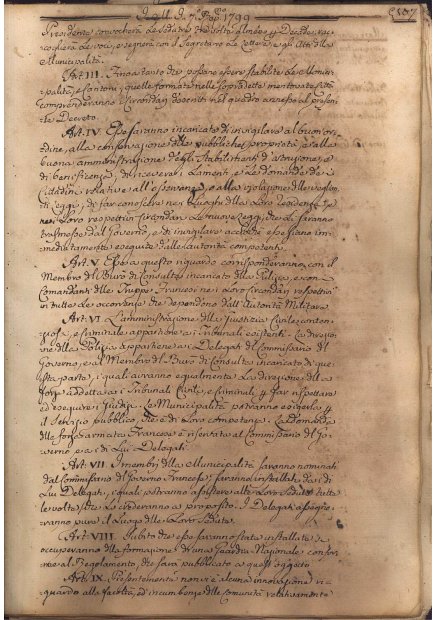 1799
Presidente convocherà le sedute
coglierà le voci, e segnerà con il Segretario le Lettere, e gli Atti della
Municipalità.
Art. III. Fino a tanto che possano essere stabilite le Munici-
palità, e Cantoni, quelle formate nelle sopradette mentovate Città
comprenderanno i Circondarj descritti nel quadro annesso al presen-
te Decreto.
Art. IV. Esse saranno incaricate d'invigilare al buon or-
dine, alla conservazione delle pubbliche proprietà, e alla
buona amministrazione degli Stabilimenti d'istruzione, e
di beneficenza, di ricevere i Lamenti, e le domande de i
Cittadini relative all'osservanza, o alla violazione delle veglian-
ti Leggi, di far conoscere nei Luoghi della Loro residenza, e
nei Loro respettivi Circondarj le nuove Leggi, che le saranno
trasmesse dal Governo, e di invigilare acciò che essi siano im-
mediatamente eseguite dalle autorità competenti.
Art. V. Esse a questo riguardo corrisponderanno con il
Membro del Burò di Consulta incaricato della Polizia, e con i
Comandanti delle Truppe Francesi nei Loro Circondarj respettivi
in tutte le occorrenze che dependono dall'Autorità Militare.
Art. VI. L'amministrazione della Giustizia Civile, conten-
ziosa, e criminale appartiene ai Tribunali esistenti. La direzio-
ne della Polizia appartiene ai Delegati del Commissario del
Governo, e al Membro del Burò di Consulta incaricato di que-
sta parte, i quali avranno egualmente la direzione della
forza addetta ai Tribunali Civili, e Criminali per far rispettare
ed eseguire i Giudizj. Le Municipalità potranno esigerla per
il servizio pubblico, che è di Loro competenza. La domanda
della forza armata Francese è risentata al Commissario del Go-
verno, e ai di Lui Delegati.
Art. VII. I membri della Municipalità saranno nominati
dal Commissario del Governo Francese; saranno installati dai di
Lui Delegati, i quali potranno assistere alle Loro Sedute tutte
le volte, che lo crederanno a proposito. I Delegati assegne-
ranno pure il Luogo delle Loro Sedute.
Art. VIII. Subito che esse saranno state installate si
occuperanno della formazione di una Guardia Nazionale confor-
me al Regolamento, che sarà pubblicato a quest'oggetto.
Art. IX. Presentemente non vi è alcuna innovazione ri-
guardo alle facoltà, ed incumbenze delle Comunità relativamente